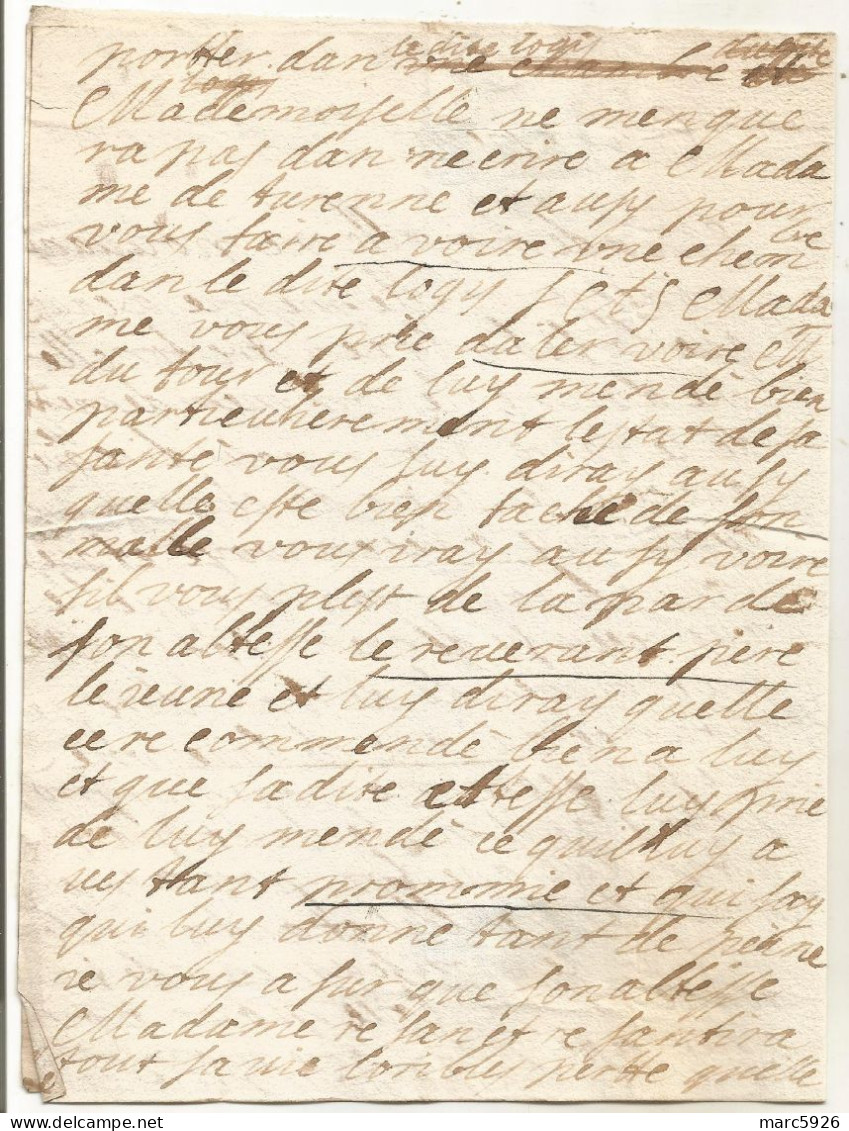 portter dan le dite logis
logy
Mademoyselle ne menque
ra pas dan necrire a Mada
me de turenne et aussy pour
vous faire a voire une chem
dan le dite logy Mada
me vous prie da ler voire Mr
du four et de luy mendé bien
particulierement lestat de sa
santé vous luy diray aussy
quelle este bien faché de son
malle vous iray aussy voire
sil vous plest de la par de
son altesse le reuerant pere
le ieune et luy diray quelle
ce re commendé bien a luy
et que sa dite altesse luy prie
de luy mendé ce quil luy a
tant prommie et qui
qui luy donne tant de peine
ie vous a sur que son altesse
Madame re sant et re santira
tout sa vie loribles pertte quelle
marc5926